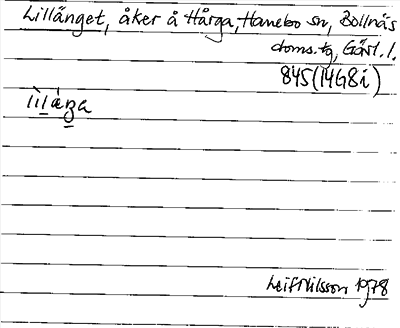 Lillänget, åker å Hårga, Hanebo sn, Bollnäs
doms.tg, Gävl. l.
845 (14G8i)
Leif Nilsson 1978